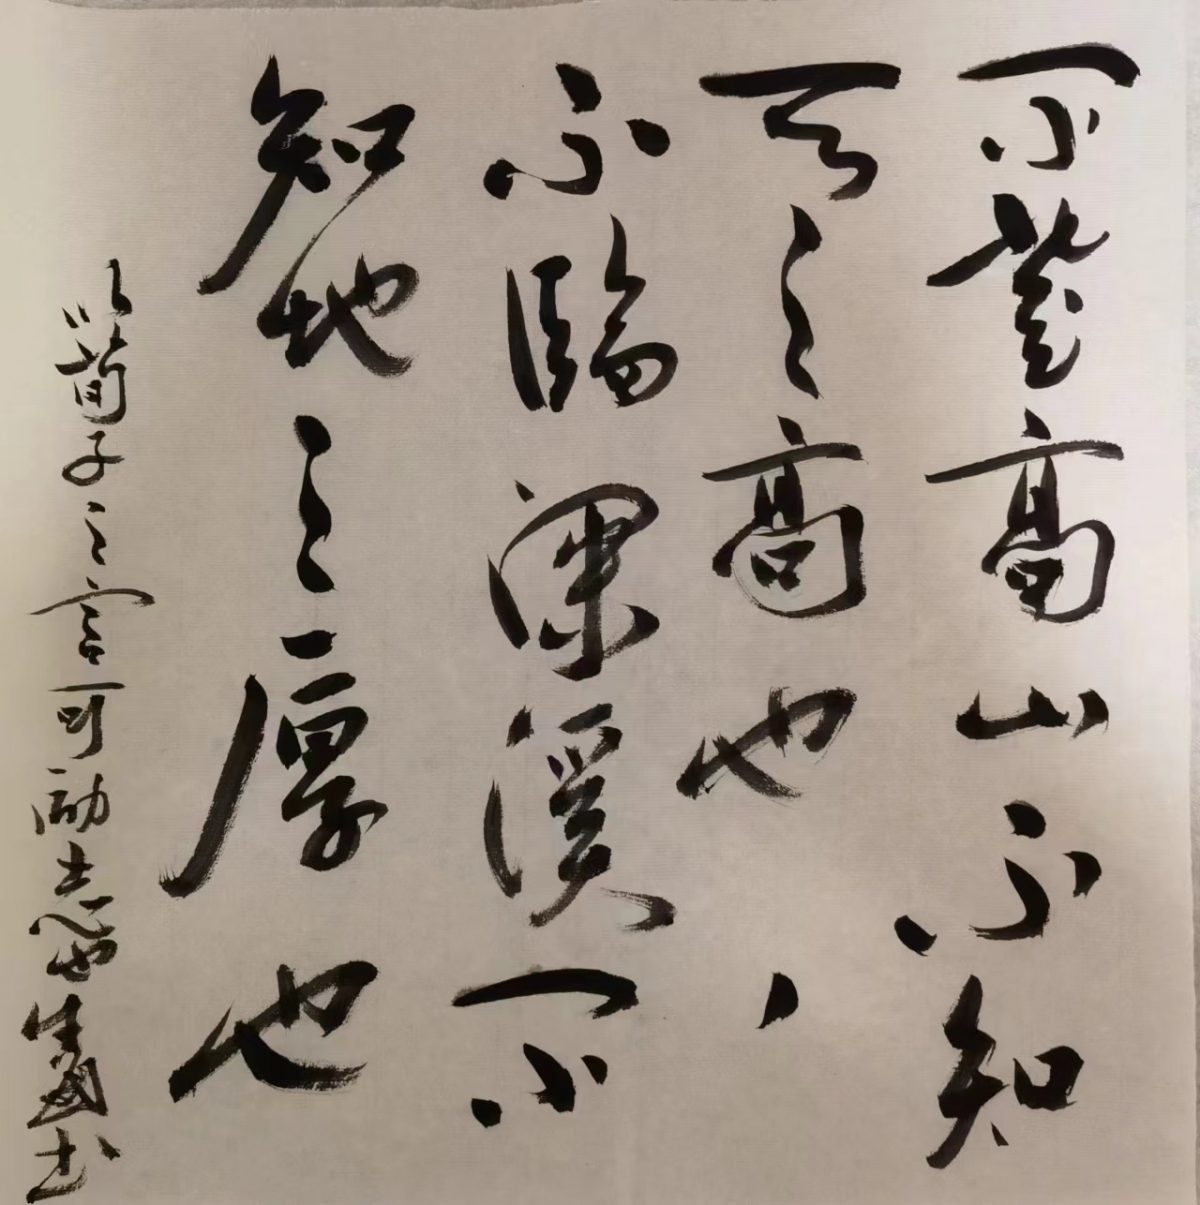 不登高山不知
天之高也、
不臨深溪不
知地之厚也
以荀子之言可励志也生书